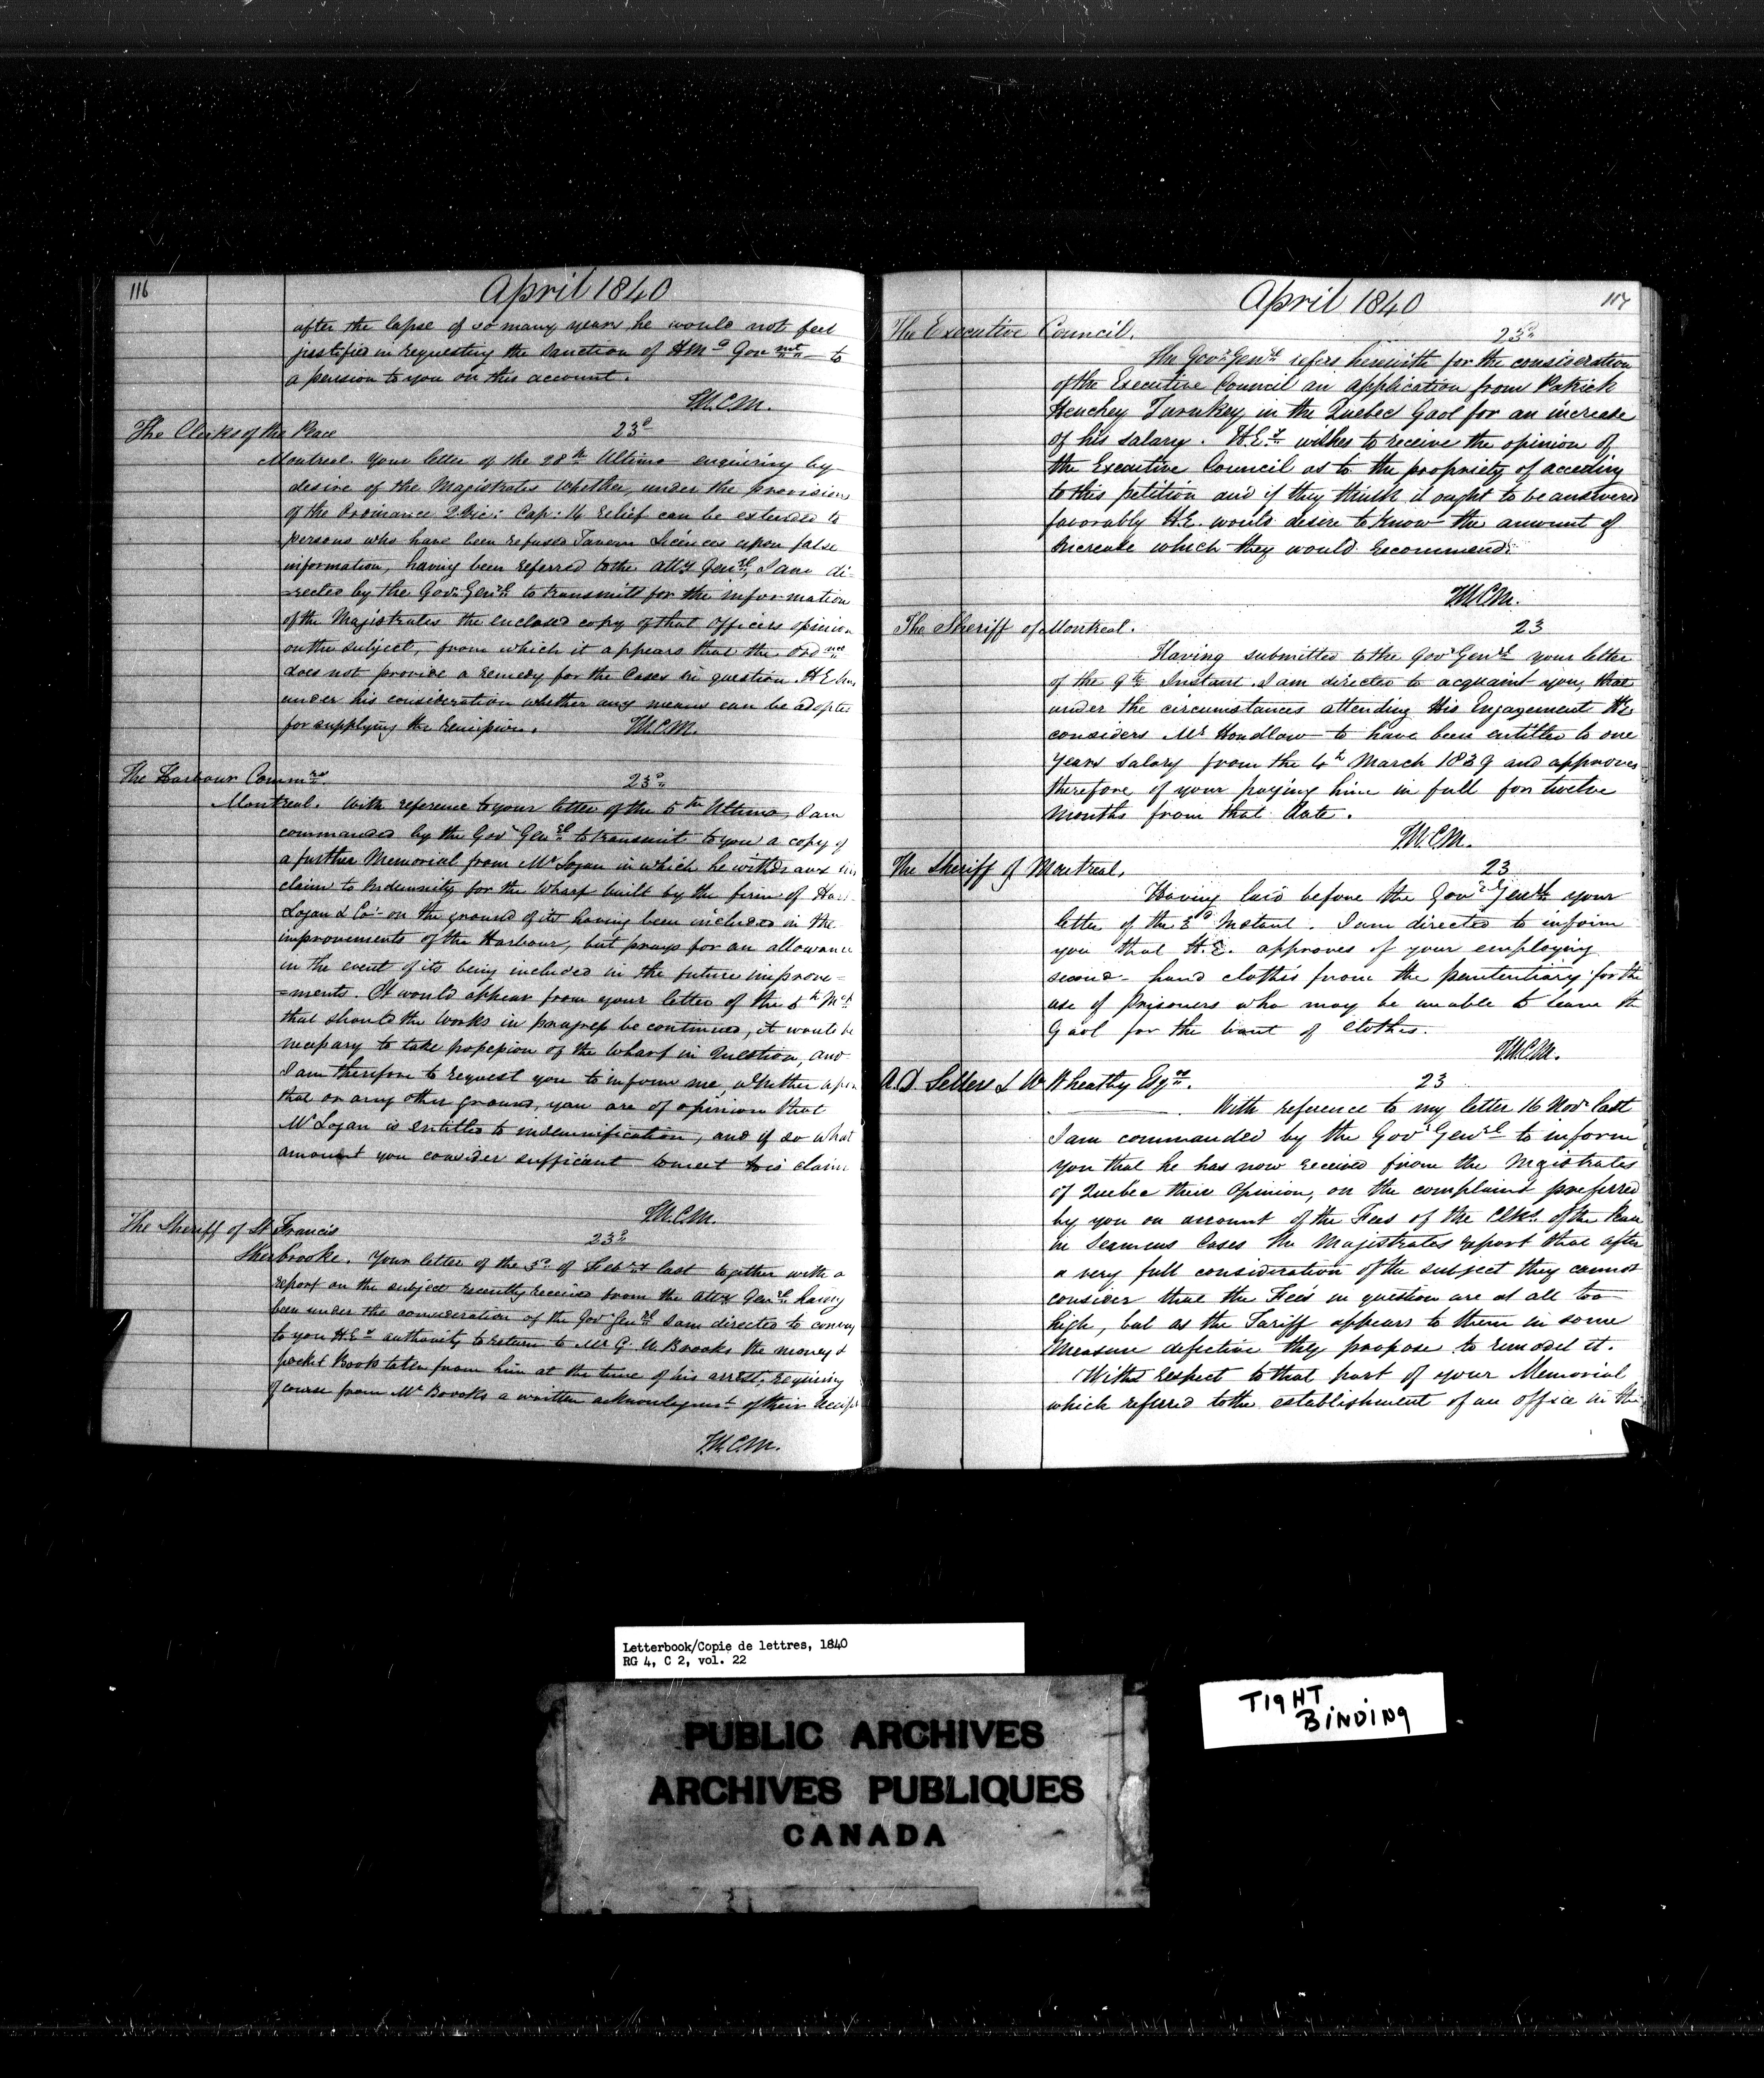 116
April 1840
after the lapse of so many years he would not feel
justified in requesting the Sanction of H M's Gov mt to
a pension to you on this account.
T.W.C.M.
The Clerks of the Peace 23d
Montreal. Your letter of the 28th Ultimo enquiring by
desire of the Magistrates whether, under the provisions
of the Ordinance 2 Vic: Cap: 14 relief can be extended to
persons who have been refused Tavern Licences upon false
information, having been referred to the Atty Genrl, I am di-
=rected by the Govr Genrl to transmit for the information
of the Magistrates the enclosed copy of that Officers opinion
on the subject, from which it appears that the Ordnce
does not provide a remedy for the Cases in question. H E has
under his consideration whether any means can be adopted
for supplying the T.W.C.M.
The Harbour Commrs 23d
Montreal. With reference to your letter of the 5th Ultimo, I am
commanded by the Govr Genrl to transmit to you a copy of
a further Memorial from Mr Logan in which he withdraws his
claim to Indemnity for the Wharf built by the firm of Hart
Logan & Co. on the ground of its having been included in the
improvements of the Harbour, but prays for an allowance
in the event of its being included in the future improve=
=ments. It would appear from your letter of the 5th
that should the Works in progress be continued, it would be
necessary to take possession of the Wharf in Question, and
I am therefore to request you to inform me, whether upon
that or any other ground, you are of opinion that
Mr Logan is entitled to indemnification, and if so what
amount you consider sufficient to meet his claim
T.W.C.M.
The Sheriff of St Francis 23d
Sherbrooke. Your letter of the 3d of Febry last together with a
report on the subject recently received from the Atty Genrl having
been under the consideration of the Govr Genrl I am directed to convey
to you H.E's authority to return to Mr G. W Brooks the money &
pocket Book taken from him at the time of his arrest, requiring
of course from Mr Brooks a written acknowlegmt of their receipt
T.W.C.M.
April 1840
117
The Executive Council. 23d
The Govr Genrl refers herewith for the consideration
of the Executive Council an application from Patrick
Henchey Turnkey in the Quebec Gaol for an increase
of his salary. H.Ey wishes to receive the opinion of
the Executive Council as to the propriety of acceding
to this petition and if they think it ought to be answered
favorably H.E. would desire to know the amount of
increase which they would recommend.
T.W.C.M.
The Sheriff of Montreal. 23
Having submitted to the Govr Genrl your letter
of the 9th Instant I am directed to acquaint you, that
under the circumstances attending His Engagement H E
considers Mr to have been entitled to one
years salary from the 4th March 1839 and approves
therefore of your paying him in full for twelve
months from that date.
T.W.C.M.
The Sheriff of Montreal. 23
Having laid before the Govr Genrl your
letter of the 3d Instant. I am directed to inform
you that H.E. approves of your employing
second-hand clothes from the penitentiary for the
use of prisoners who may be unable to leave the
Gaol for the want of Clothes.
T.W.C.M.
A. D. Sellers & W Wheatly Esqrs. 23
With reference to my letter 16 Novr last
I am commanded by the Govr Genrl to inform
you that he has now received from the Magistrates
of Quebec their Opinion, on the complaint preferred
by you on account of the Fees of the Clks. of the Peace
in Seamens Cases the Magistrates report that after
a very full consideration of the subject they cannot
consider that the Fees in question are at all too
high, but as the Tariff appears to them in some
measure defective they propose to remodel it.
With respect to that part of your Memorial
which referred to the establishment of an office in this
Letterbook/Copie de lettres, 1840
RG 4, C 2, vol. 22
TIGHT
BINDING
PUBLIC ARCHIVES
ARCHIVES PUBLIQUES
CANADA